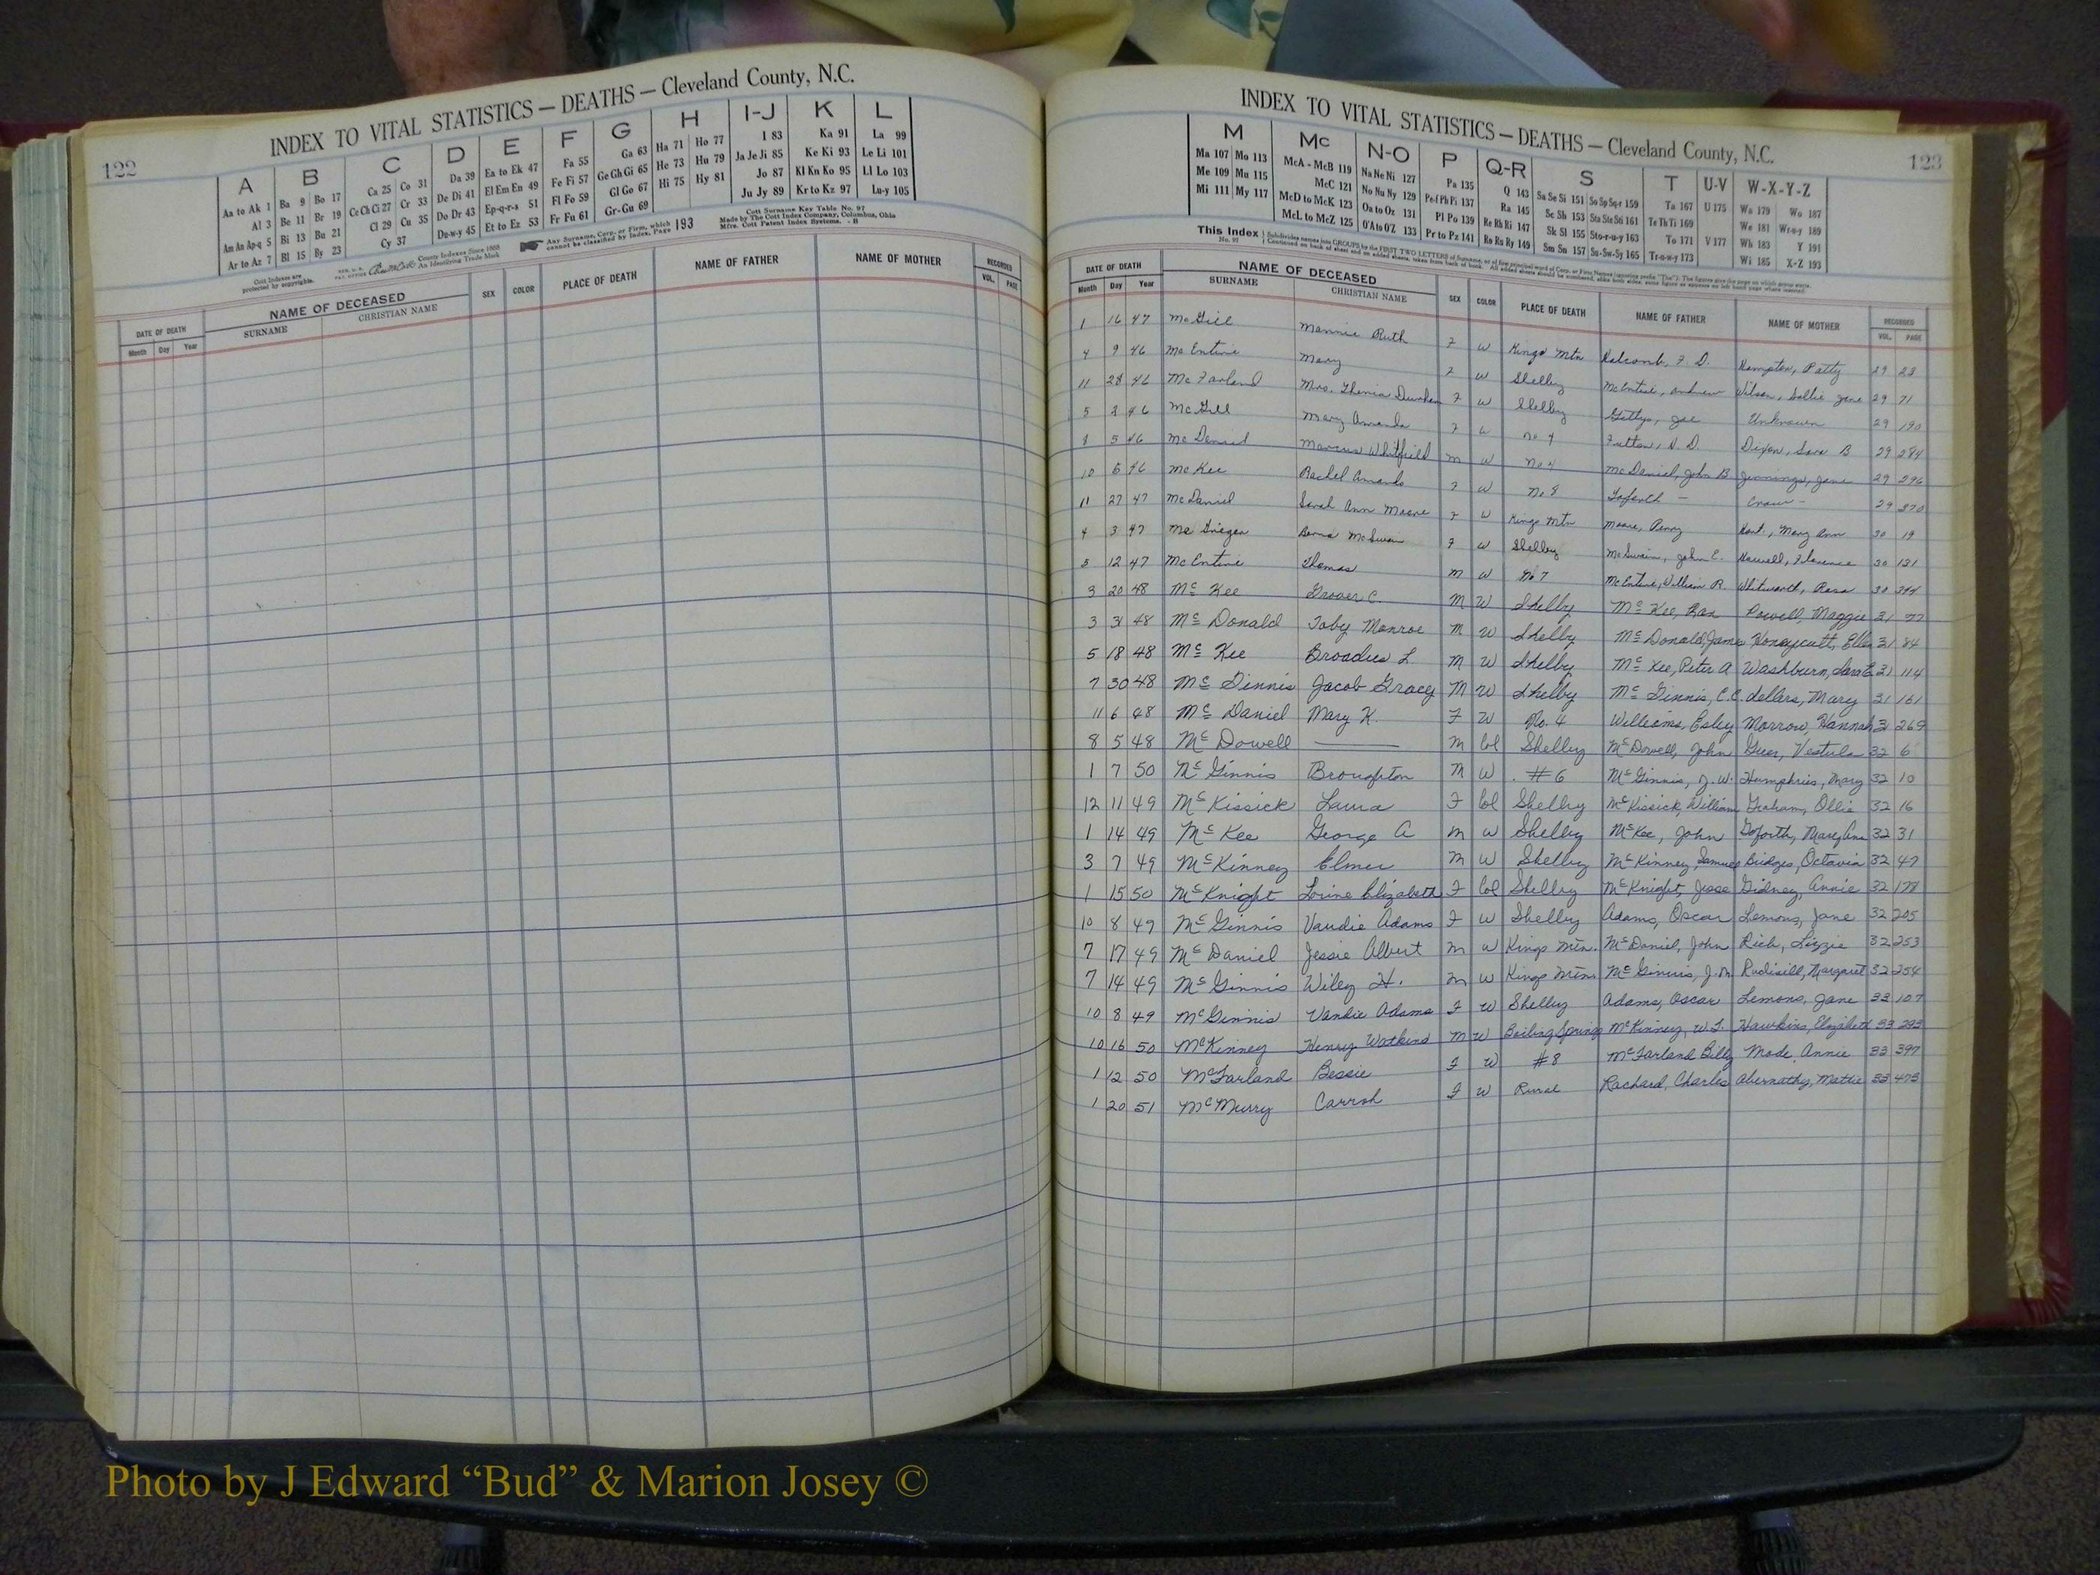 122
INDEX TO VITAL STATISTICS — DEATHS — Cleveland County, N.C.
A B C D E F G H I-J K L
Aa to Ak 1 Ba 9 Bo 17 Ca 25 Co 31 Da 39 Ea to Ek 47 Fa 55 Ga 63 Ha 71 Ho 77 I 83 Ka 91 La 99
Al 3 Be 11 Br 19 Ce Ch Ci 27 Cr 33 De Di 41 El Em En 49 Fe Fi 57 Ge Gh Gi 65 He 73 Hu 79 Ja Je Ji 85 Ke Ki 93 Le Li 101
Am An Ap-q 5 Bi 13 Bu 21 Cl 29 Cu 35 Do Dr 43 Ep-q-r-s 51 Fl Fo 59 Gl Go 67 Hi 75 Hy 81 Jo 87 Kl Kn Ko 95 Ll Lo 103
Ar to Az 7 Bl 15 By 23 Cy 37 Du-w-y 45 Et to Ez 53 Fr Fu 61 Gr-Gu 69 Ju Jy 89 Kr to Kz 97 Lu-y 105
Cott Indexes are protected by copyrights.
County Indexes Since 1888
An Identifying Trade Mark
Any Surname, Corp. or Firm, which cannot be classified by Index, Page 193
Cott Surname Key Table No. 97
Made by The Cott Index Company, Columbus, Ohio
Mfrs. Cott Patent Index Systems. - B
DATE OF DEATH NAME OF DECEASED SEX COLOR PLACE OF DEATH NAME OF FATHER NAME OF MOTHER RECORDED
Month Day Year SURNAME CHRISTIAN NAME VOL. PAGE
INDEX TO VITAL STATISTICS — DEATHS — Cleveland County, N.C.
123
M Mc N-O P Q-R S T U-V W-X-Y-Z
Ma 107 Mo 113 McA - McB 119 Na Ne Ni 127 Pa 135 Q 143 Sa Se Si 151 So Sp Sq-r 159 Ta 167 U 175 Wa 179 Wo 187
Me 109 Mu 115 McC 121 No Nu Ny 129 Pe-f Ph Pi 137 Ra 145 Sc Sh 153 Sta Ste Sti 161 Te Th Ti 169 We 181 Wr-u-y 189
Mi 111 My 117 McD to McK 123 Oa to Oz 131 Pl Po 139 Re Rh Ri 147 Sk Sl 155 Sto-r-u-y 163 To 171 V 177 Wh 183 Y 191
McL to McZ 125 O'A to O'Z 133 Pr to Pz 141 Ro Rs Ry 149 Sm Sn 157 Su-Sw-Sy 165 Tr-u-w-y 173 Wi 185 X-Z 193
This Index No. 97
DATE OF DEATH NAME OF DECEASED SEX COLOR PLACE OF DEATH NAME OF FATHER NAME OF MOTHER RECORDED
Month Day Year SURNAME CHRISTIAN NAME VOL. PAGE
1 16 47 McGill Mannie Ruth F W Kings Mtn Holcomb, F. D. Hampton, Patty 29 28
4 9 46 McEntire Mary F W Shelby McEntire, Andrew Wilson, Dollie Jane 29 71
11 28 46 McFarland Mrs. Thenia Durham F W Shelby Gettys, Joe Unknown 29 190
5 46 McGill Mary Amanda F W No 4 Fulton, D. Dixon, Sara B 29 284
5 46 McDaniel Marcus Whitfield M W No 4 McDaniel, John B Jennings, Jane 29 296
10 6 46 McKee Rachel Amanda F W No 8 29 370
11 27 47 McDaniel Sarah Ann Moore F W Kings Mtn Moore, Perry , Mary Ann 30 19
4 3 47 McSwain F W Shelby McSwain, John E. Howell, Florence 30 131
5 12 47 McEntire Thomas M W No 7 McEntire, William R. Whitworth, Rosa 30
3 20 48 McKee Grover C. M W Shelby McKee, Powell, Maggie 31 77
3 31 48 McDonald Toby Monroe M W Shelby McDonald, James Honeycutt, Ellen 31 84
5 18 48 McKee Broadus L. M W Shelby McKee, Peter A Washburn, Sara E 31 114
7 30 48 McGinnis Jacob Gracy M W Shelby McGinnis, C.C. Sellers, Mary 31 161
11 6 48 McDaniel Mary K. F W No. 4 Williams, Esley Morrow, Hannah 31 269
8 5 48 McDowell —— M Col Shelby McDowell, John , Vestula 32 6
1 7 50 McGinnis Broughton M W #6 McGinnis, J.W. Humphries, Mary 32 10
12 11 49 McKissick Laura F Col Shelby McKissick, William Graham, Ollie 32 16
1 14 49 McKee George A M W Shelby McKee, John Goforth, Mary Ann 32 31
3 7 49 McKinney Elmer M W Shelby McKinney, Samuel Bridges, Octavia 32 47
1 15 50 McKnight Lorine Elizabeth F Col Shelby McKnight, Jesse Gidney, Annie 32 178
10 8 49 McGinnis Vaudie Adams F W Shelby Adams, Oscar Lemons, Jane 32 205
7 17 49 McDaniel Jessie Albert M W Kings Mtn. McDaniel, John Rich, Lizzie 32 253
7 14 49 McGinnis Wiley H. M W Kings Mtn. McGinnis, J.M. Rudisill, Margaret 32 254
10 8 49 McGinnis Vandie Adams F W Shelby Adams, Oscar Lemons, Jane 33 107
10 16 50 McKinney Henry Watkins M W Boiling Springs McKinney, W.T. Hawkins, Elizabeth 33 293
1 12 50 McFarland Bessie F W #8 McFarland Billy Mode, Annie 33 397
1 20 51 McMurry Carrah F W Rural Rachard, Charles Abernathy, Mattie 33 473
Photo by J Edward “Bud” & Marion Josey ©